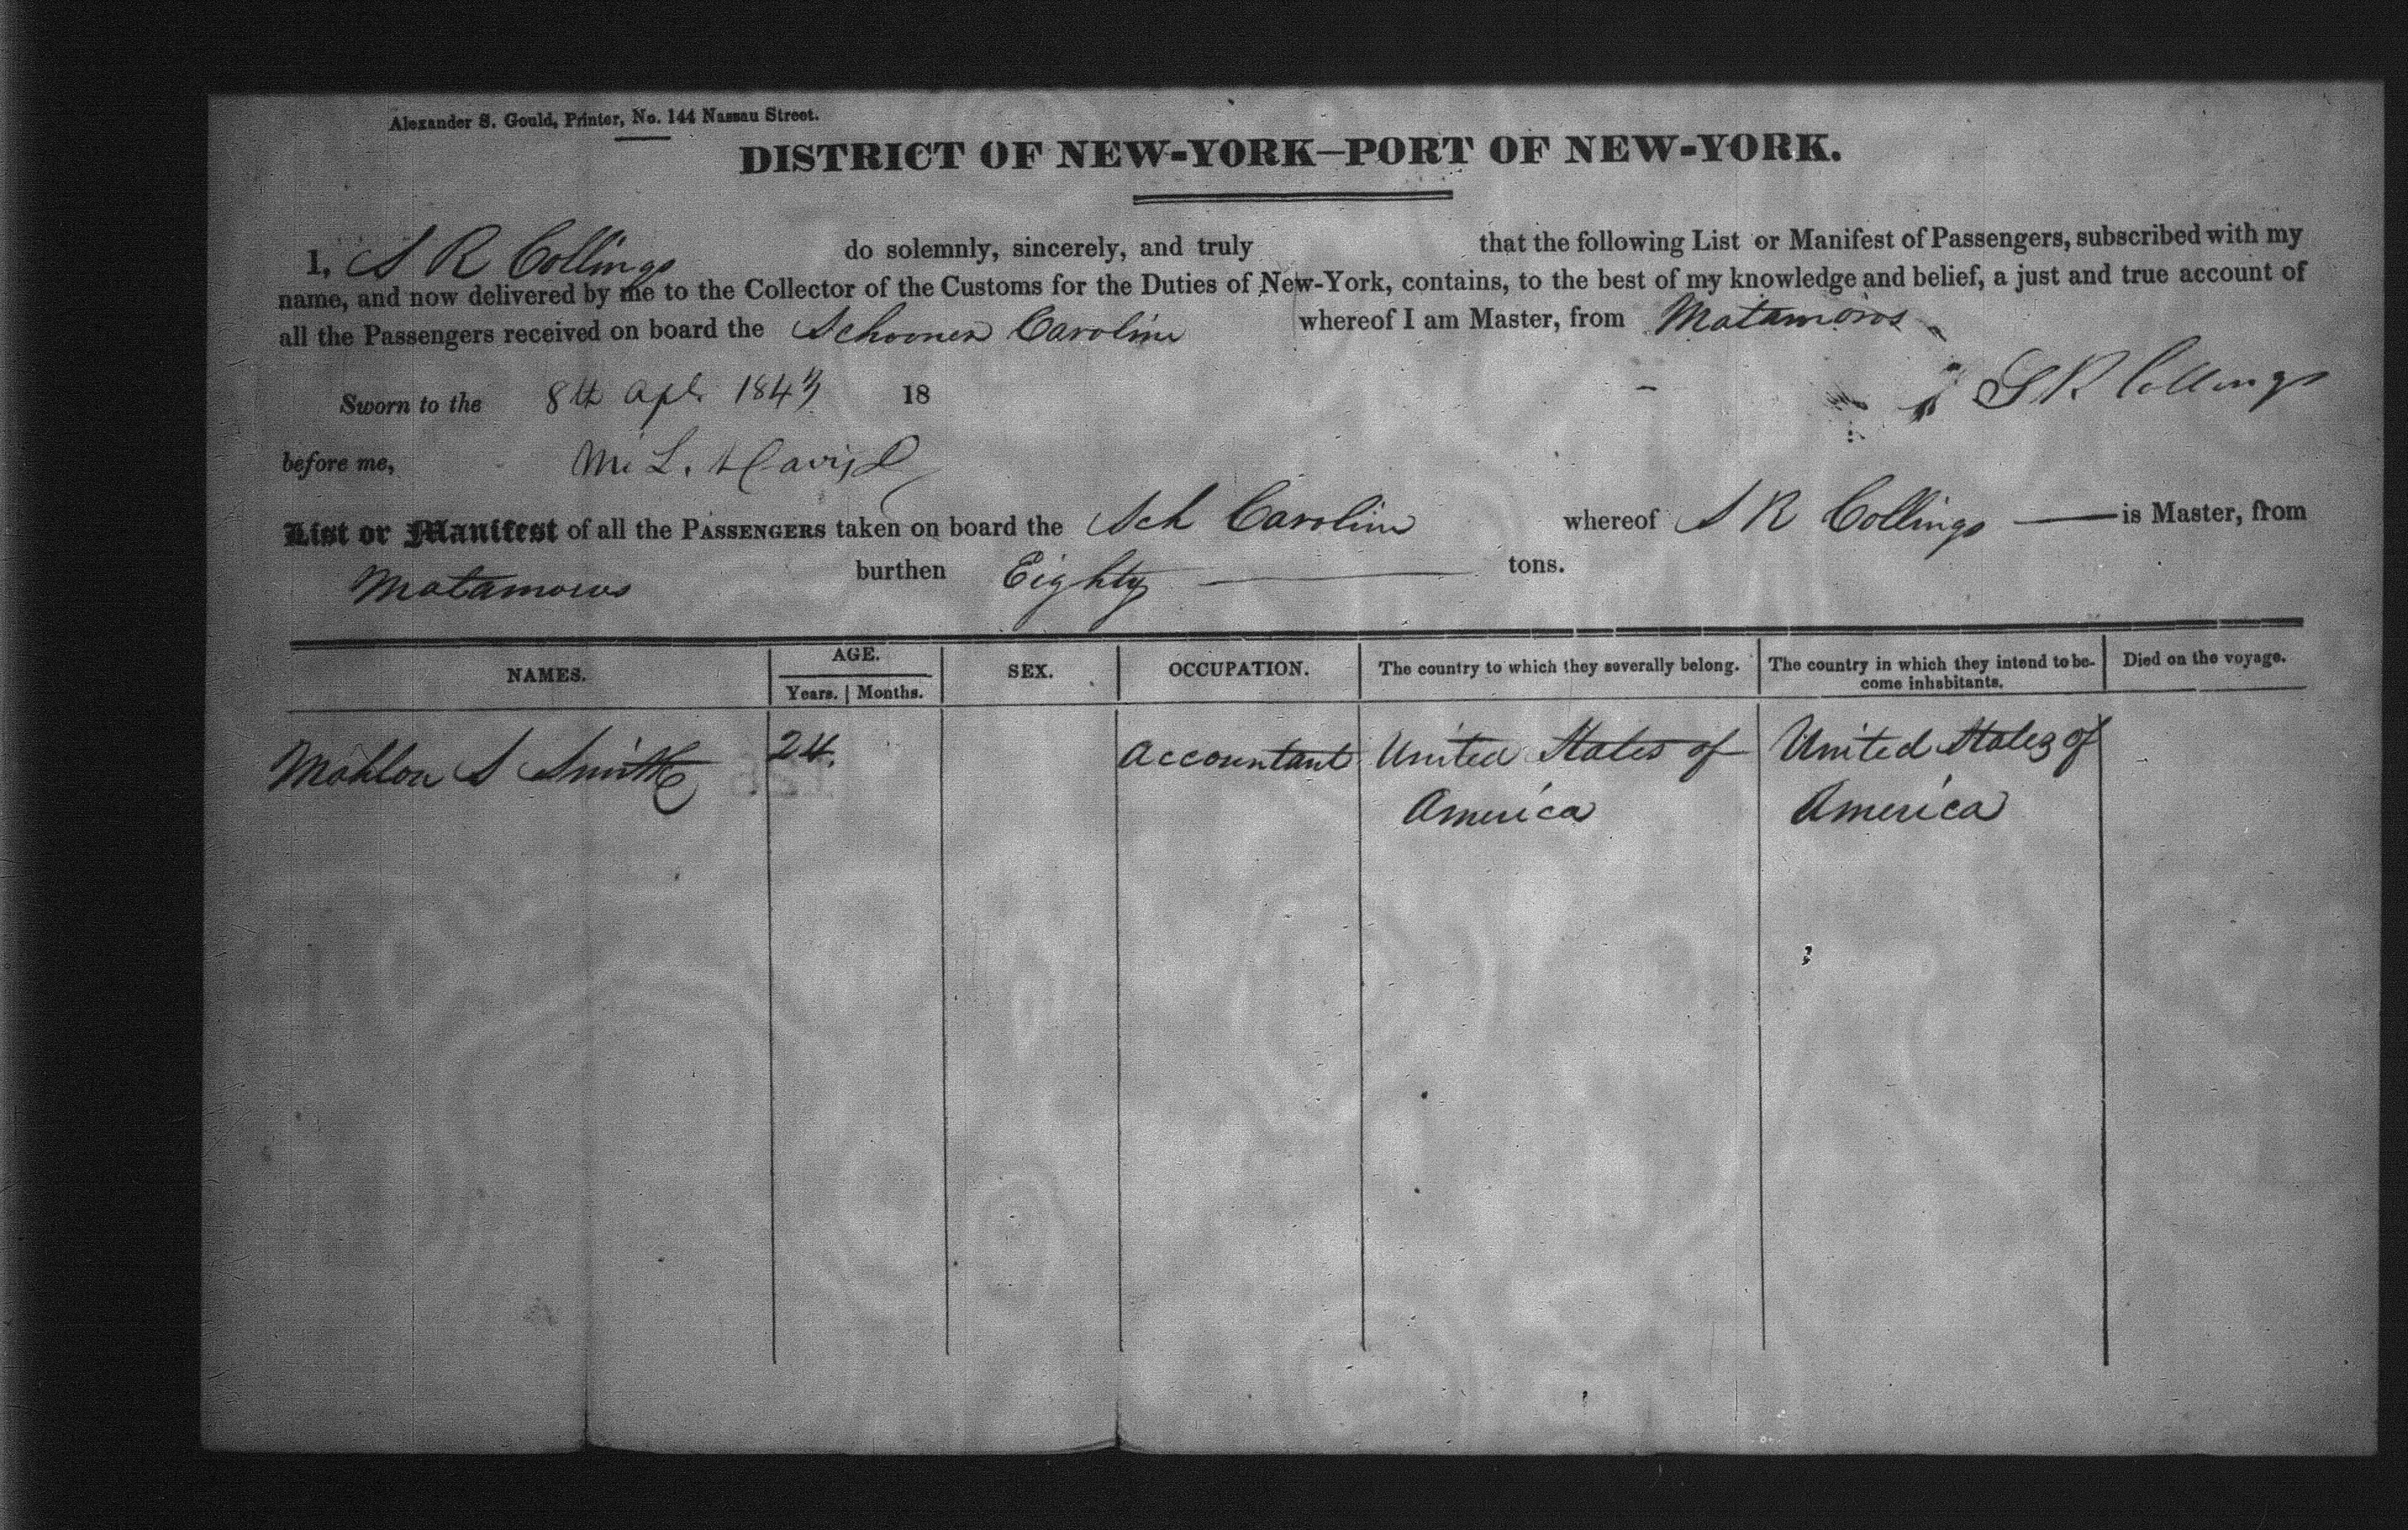 Alexander S. Gould, Printer, No. 144 Nassau Street.
DISTRICT OF NEW-YORK—PORT OF NEW-YORK.
I, S R Collings do solemnly, sincerely, and truly that the following List or Manifest of Passengers, subscribed with my
name, and now delivered by me to the Collector of the Customs for the Duties of New-York, contains, to the best of my knowledge and belief, a just and true account of
all the Passengers received on board the Schooner Caroline whereof I am Master, from Matamoros
Sworn to the 8th Apl. 1843 18 S R Collings
before me, M. L. Davis
List or Manifest of all the PASSENGERS taken on board the Sch Caroline whereof S R Collings — is Master, from
Matamoros burthen Eighty — tons.
NAMES. AGE. Years. Months. SEX. OCCUPATION. The country to which they severally belong. The country in which they intend to be- come inhabitants. Died on the voyage.
Mahlon S Smith 24 Accountant United States of United States of
America America